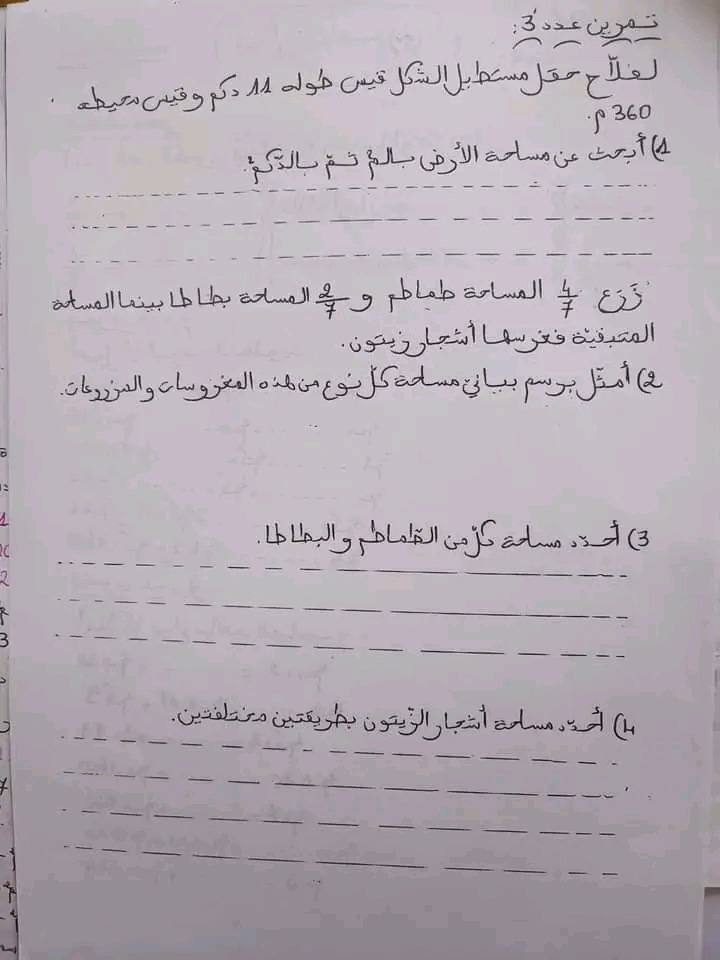 تمرين عدد 3:
لفلّاح حقل مستطيل الشكل قيس طوله 11 دكم و قيس محيطه
360 م.
1) أبحث عن مساحة الأرض بالم² ثمّ بالدّكم².
زَرَع 4/7 المساحة طماطم و 2/7 المساحة بطاطا بينما المساحة
المتبقيّة فغرسها أشجار زيتون.
2) أمثّل برسم بيانيّ مساحة كلّ نوع من هذه المغروسات والمزروعات.
3) أحدّد مساحة كلّ من الطّماطم والبطاطا.
4) أحدّد مساحة أشجار الزّيتون بطريقتين مختلفتين.